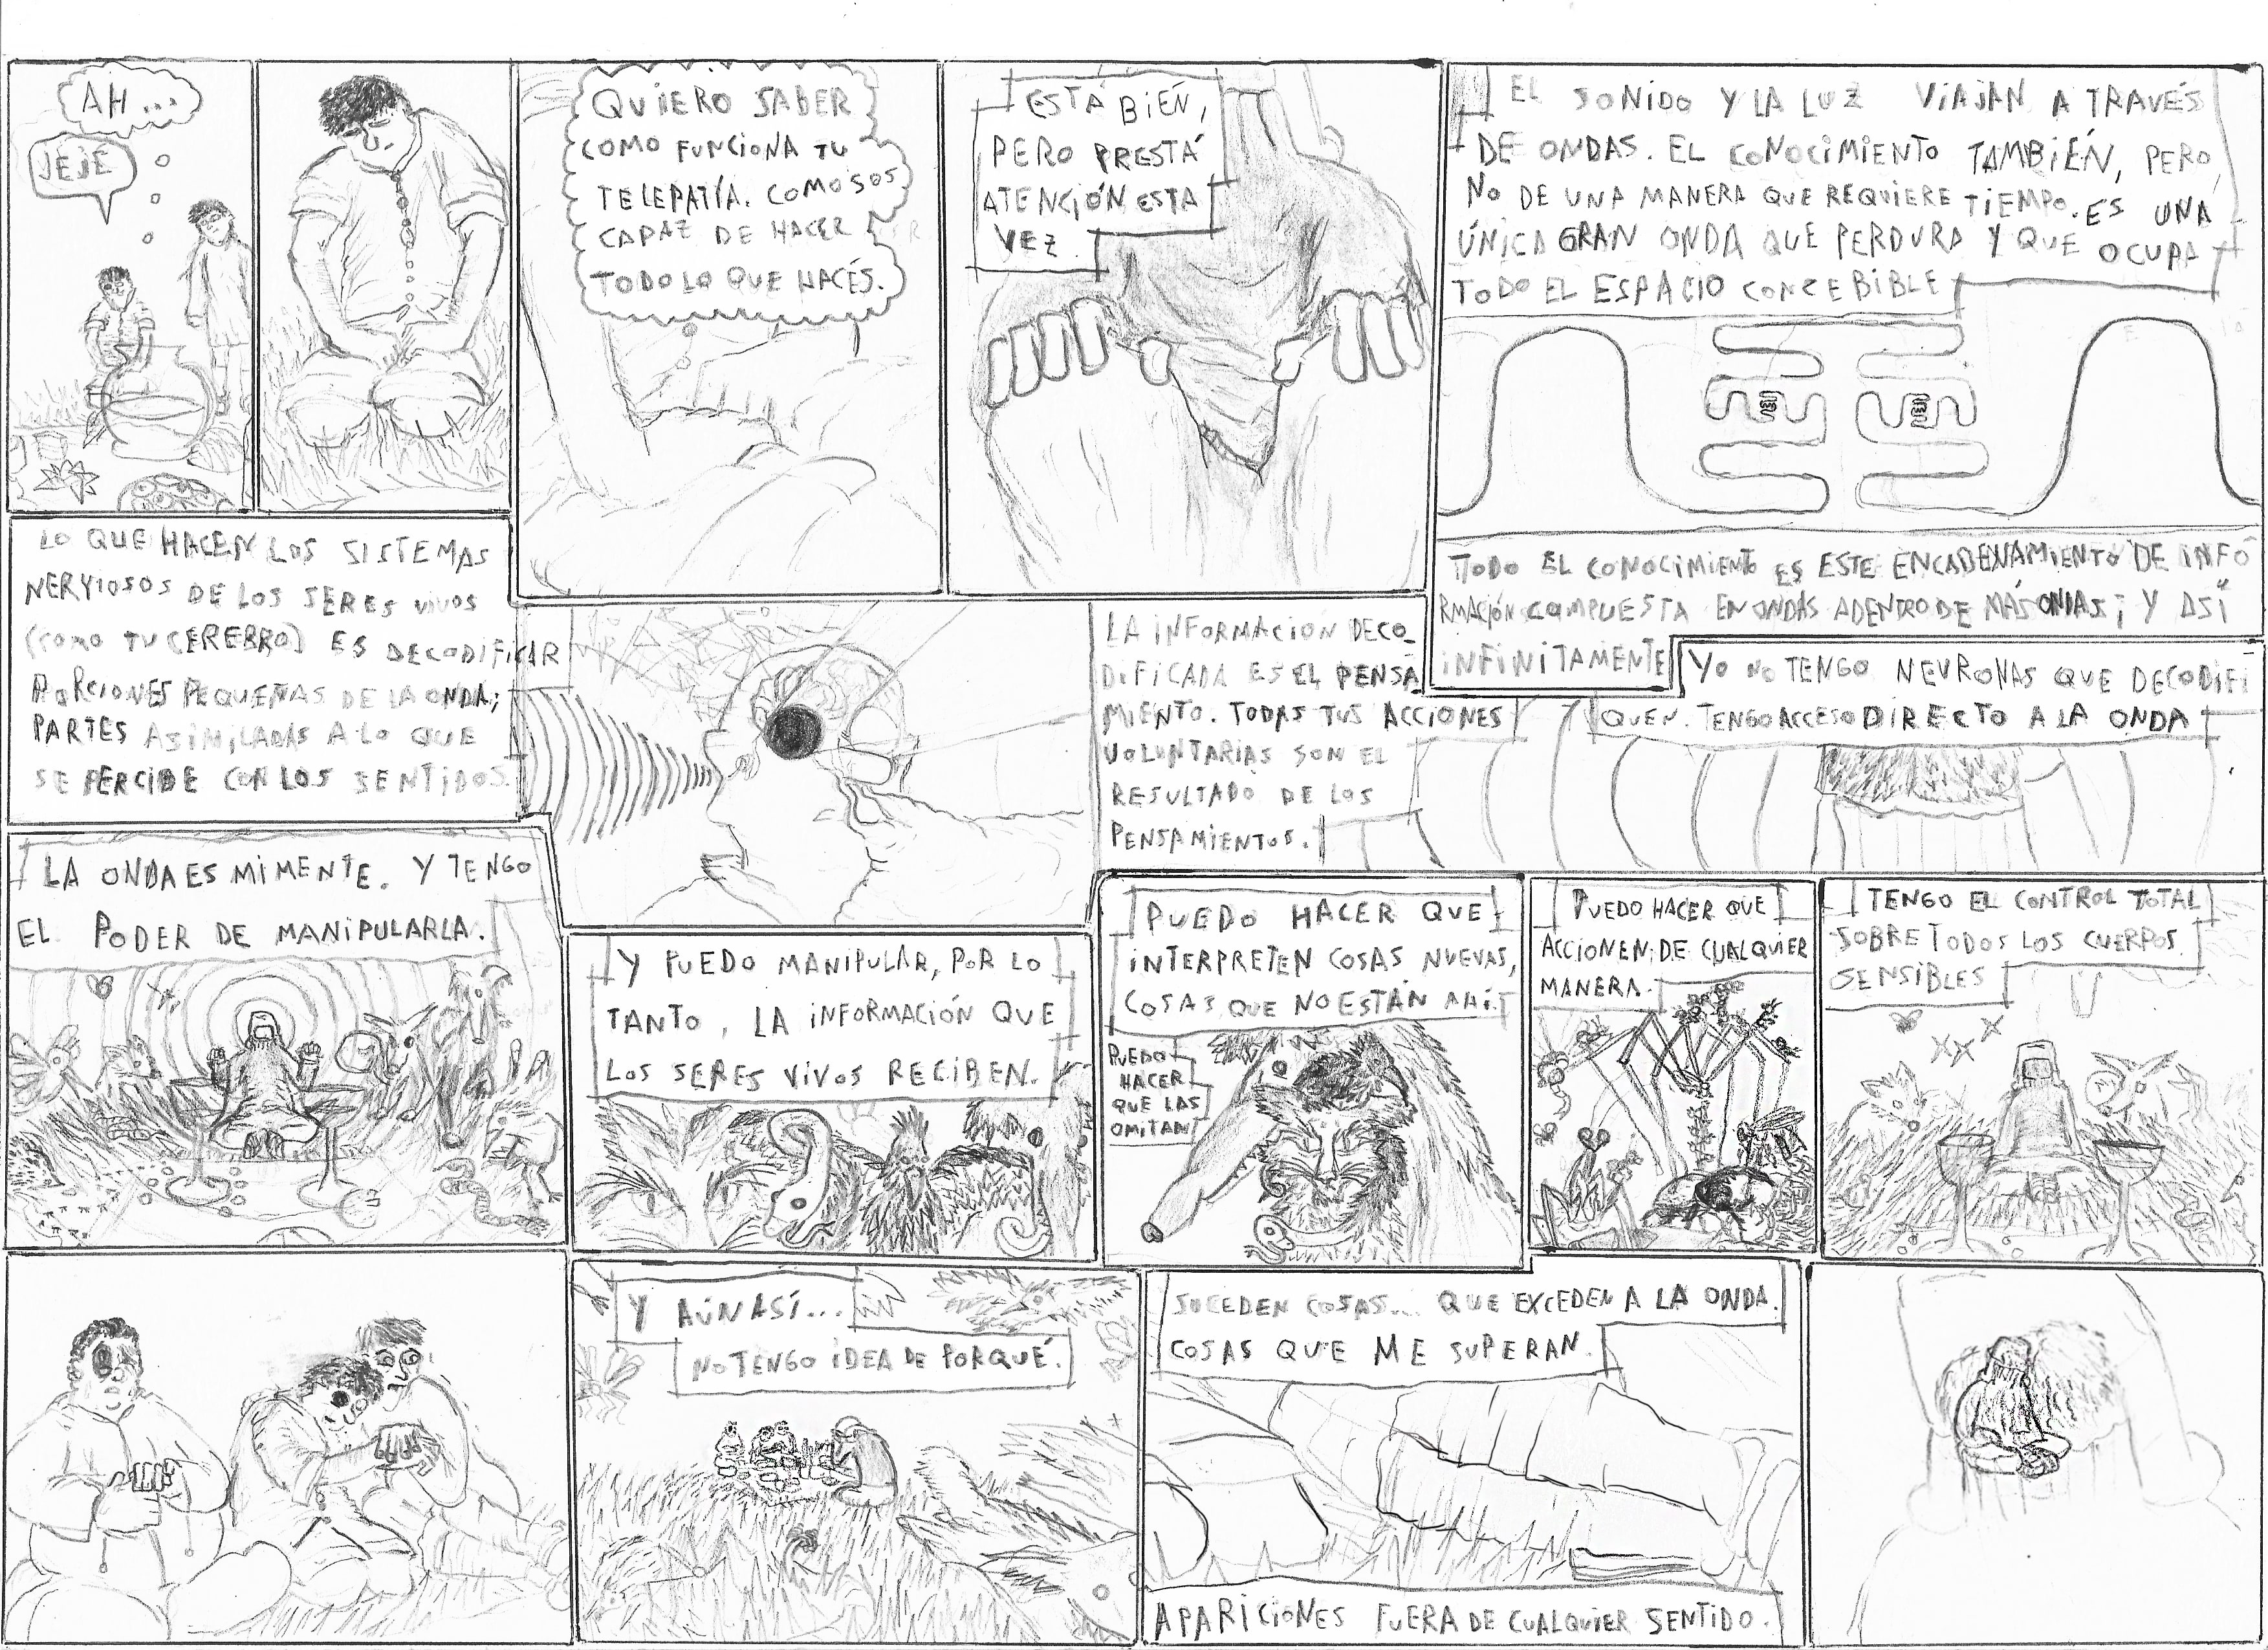 AH...
JEJÉ
QUIERO SABER
COMO FUNCIONA TU
TELEPATÍA. COMO SOS
CAPAZ DE HACER
TODO LO QUE HACÉS.
ESTÁ BIÉN,
PERO PRESTÁ
ATENCIÓN ESTA
VEZ.
EL SONIDO Y LA LUZ VIAJAN A TRAVÉS
DE ONDAS. EL CONOCIMIENTO TAMBIÉN, PERO
NO DE UNA MANERA QUE REQUIERE TIEMPO. ES UNA
ÚNICA GRAN ONDA QUE PERDURA Y QUE OCUPA
TODO EL ESPACIO CONCEBIBLE
TODO EL CONOCIMIENTO ES ESTE ENCADENAMIENTO DE INFO
RMACIÓN COMPUESTA EN ONDAS ADENTRO DE MÁS ONDAS; Y ASÍ
INFINITAMENTE
LO QUE HACEN LOS SISTEMAS
NERVIOSOS DE LOS SERES VIVOS
(COMO TU CEREBRO) ES DECODIFICAR
PORCIONES PEQUEÑAS DE LA ONDA;
PARTES ASIMILADAS A LO QUE
SE PERCIBE CON LOS SENTIDOS.
LA INFORMACIÓN DECO_
DIFICADA ES EL PENSA
MIENTO. TODAS TUS ACCIONES
VOLUNTARIAS SON EL
RESULTADO DE LOS
PENSAMIENTOS.
YO NO TENGO NEURONAS QUE DECODIFI
QUEN. TENGO ACCESO DIRECTO A LA ONDA
LA ONDA ES MI MENTE. Y TENGO
EL PODER DE MANIPULARLA.
Y PUEDO MANIPULAR, POR LO
TANTO, LA INFORMACIÓN QUE
LOS SERES VIVOS RECIBEN.
PUEDO HACER QUE
INTERPRETEN COSAS NUEVAS,
COSAS QUE NO ESTÁN AHÍ.
PUEDO
HACER
QUE LAS
OMITAN
PUEDO HACER QUE
ACCIONEN DE CUALQUIER
MANERA.
TENGO EL CONTROL TOTAL
SOBRE TODOS LOS CUERPOS
SENSIBLES
Y AÚN ASÍ...
NO TENGO IDEA DE PORQUÉ.
SUCEDEN COSAS... QUE EXCEDEN A LA ONDA.
COSAS QUE ME SUPERAN.
APARICIONES FUERA DE CUALQUIER SENTIDO.